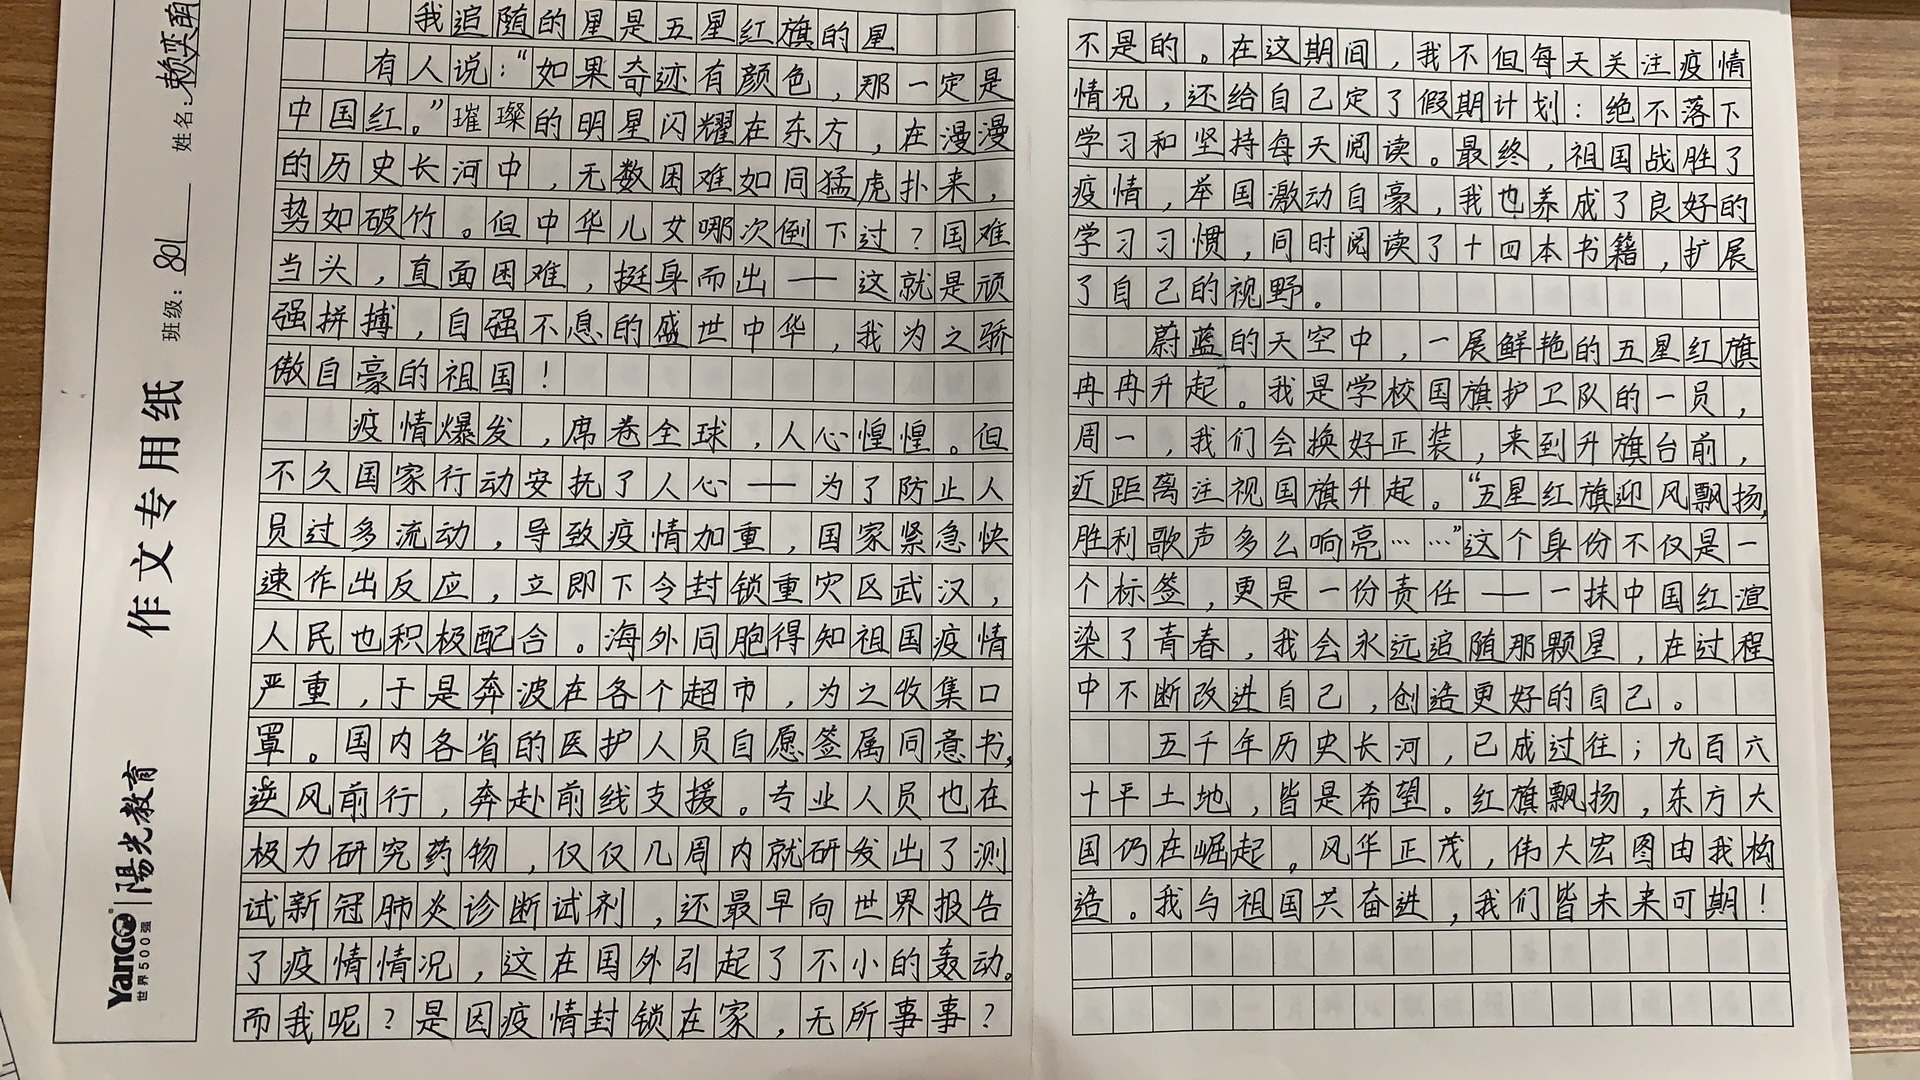 作文专用纸
班级：801
姓名：赖奕萌
YanGO 陽光教育
世界500强
我追随的星是五星红旗的星
有人说：“如果奇迹有颜色，那一定是
中国红。”璀璨的明星闪耀在东方，在漫漫
的历史长河中，无数困难如同猛虎扑来，
势如破竹。但中华儿女哪次倒下过？国难
当头，直面困难，挺身而出——这就是顽
强拼搏，自强不息的盛世中华，我为之骄
傲自豪的祖国！
疫情爆发，席卷全球，人心惶惶。但
不久国家行动安抚了人心——为了防止人
员过多流动，导致疫情加重，国家紧急快
速作出反应，立即下令封锁重灾区武汉，
人民也积极配合。海外同胞得知祖国疫情
严重，于是奔波在各个超市，为之收集口
罩。国内各省的医护人员自愿签属同意书，
逆风前行，奔赴前线支援。专业人员也在
极力研究药物，仅仅几周内就研发出了测
试新冠肺炎诊断试剂，还最早向世界报告
了疫情情况，这在国外引起了不小的轰动。
而我呢？是因疫情封锁在家，无所事事？
不是的。在这期间，我不但每天关注疫情
情况，还给自己定了假期计划：绝不落下
学习和坚持每天阅读。最终，祖国战胜了
疫情，举国激动自豪，我也养成了良好的
学习习惯，同时阅读了十四本书籍，扩展
了自己的视野。
蔚蓝的天空中，一展鲜艳的五星红旗
冉冉升起。我是学校国旗护卫队的一员，
周一，我们会换好正装，来到升旗台前，
近距离注视国旗升起。“五星红旗迎风飘扬，
胜利歌声多么响亮……”这个身份不仅是一
个标签，更是一份责任——一抹中国红渲
染了青春，我会永远追随那颗星，在过程
中不断改进自己，创造更好的自己。
五千年历史长河，已成过往；九百六
十平土地，皆是希望。红旗飘扬，东方大
国仍在崛起。风华正茂，伟大宏图由我构
造。我与祖国共奋进，我们皆未来可期！